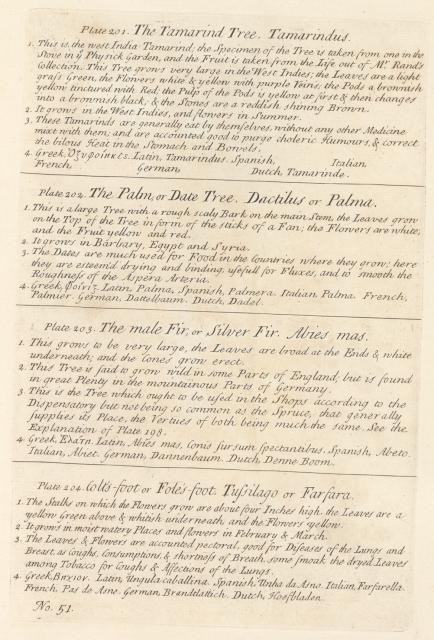 Plate 201. The Tamarind Tree. Tamarindus.
1. This is the west India Tamarind; the Specimen of the Tree is taken from one in the
Stove in yͤ Physick Garden, and the Fruit is taken from the Life out of Mr. Rand's
Collection. This Tree grows very large in the West Indies; the Leaves are a light
graſs Green, the Flowers white & yellow with purple Veins; the Pods a brownish
yellow tinctured with Red; the Pulp of the Pods is yellow at first & then changes
into a brownish black; & the Stones are a reddish shining Brown.
2. It grows in the West Indies, and flowers in Summer.
3. These Tamarinds are generally eat by themselves, without any other Medicine
mixt with them; and are accounted good to purge choleric Humours, & correct
the boiling Heat in the Stomach and Bowels.
4. Greek, Ὀξυφοίνικες. Latin, Tamarindus. Spanish, Italian
French, German, Dutch, Tamarinde.
Plate 202. The Palm, or Date Tree. Dactilus or Palma.
1. This is a large Tree with a rough scaly Bark on the main Stem, the Leaves grow
on the Top of the Tree in form of the sticks of a Fan; the Flowers are white,
and the Fruit yellow and red.
2. It grows in Barbary, Egypt and Syria.
3. The Dates are much used for Food in the Countries where they grow; here
they are esteem'd drying and binding, usefull for Fluxes, and to smooth the
Roughneſs of the Aspera Arteria.
4. Greek, Φοίνιξ. Latin, Palma, Spanish, Palmera. Italian, Palma. French,
Palmier. German, Dattelbaum. Dutch, Dadel.
Plate 203. The male Fir, or Silver Fir. Abies mas.
1. This grows to be very large, the Leaves are broad at the Ends & white
underneath; and the Cones grow erect.
2. This Tree is said to grow wild in some Parts of England; but is found
in great Plenty in the mountainous Parts of Germany.
3. This is the Tree which ought to be uſed in the Shops according to the
Dispensatory but not being so common as the Spruce, that generally
supplies its Place, the Vertues of both being much the same. See the
Explanation of Plate 198.
4. Greek, Ελάτη. Latin, Abies mas, Conis sursum spectantibus. Spanish, Abeto.
Italian, Abiet. German, Dannenbaum. Dutch, Denne Boom.
Plate 204. Colt's-foot or Fole's-foot. Tuſsilago or Farfara.
1. The Stalks on which the Flowers grow are about four Inches high, the Leaves are a
yellow Green above & whitish underneath and the Flowers yellow.
2. It grows in moist watery Places and flowers in February & March.
3. The Leaves & Flowers are accounted pectoral, good for Diseases of the Lungs and
Breast, as Coughs, Consumptions, & shortneſs of Breath, some smoak the dryed Leaves
among Tobacco for Coughs & Affections of the Lungs.
4. Greek, Βηχιον. Latin, Ungula caballina. Spanish, Unha da Asno. Italian, Farfarella.
French, Pas de Asne. German, Brandlattich. Dutch, Hoefbladen.
No. 51.